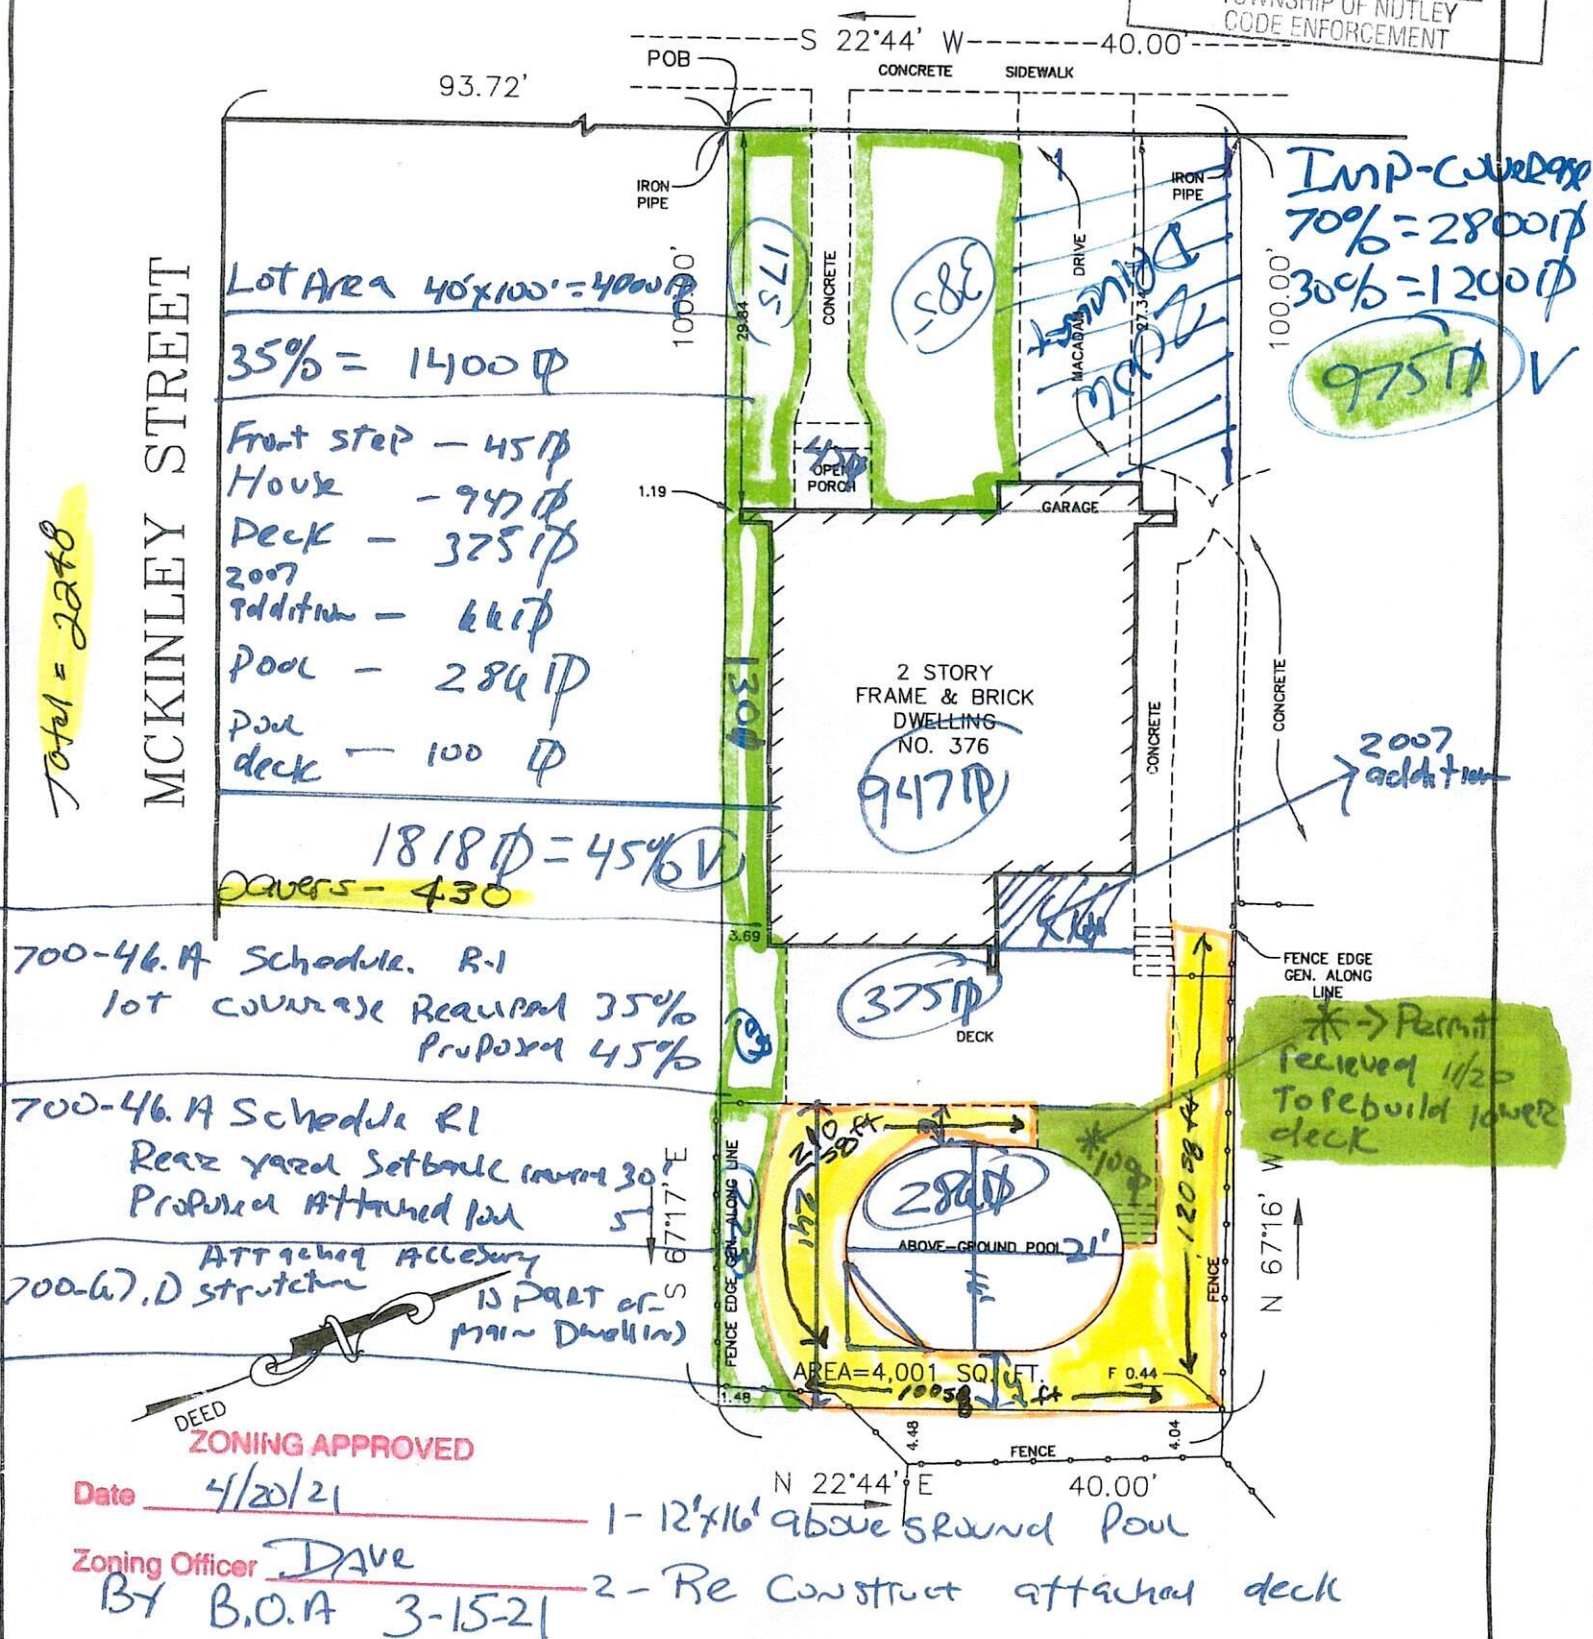 TOWNSHIP OF NUTLEY
CODE ENFORCEMENT
S 22°44' W 40.00'
POB
CONCRETE SIDEWALK
93.72'
IRON PIPE
IRON PIPE
Imp-Coverage
70% = 2800
30% = 1200
975 V
MCKINLEY STREET
Total = 2248
Lot Area 40'x100' = 4000
35% = 1400
Front step - 45
House - 947
Deck - 375
2007
addition - 66
Pool - 286
Pool
deck - 100
1818 = 45% V
pavers - 430
100.00'
29.84
175
CONCRETE
385
MACADAM DRIVE
27.34
100.00'
45
OPEN
PORCH
1.19
GARAGE
130
2 STORY
FRAME & BRICK
DWELLING
NO. 376
947
CONCRETE
CONCRETE
2007
addition
3.69
375
DECK
FENCE EDGE
GEN. ALONG
LINE
* -> Permit
recieved 11/20
To rebuild lower
deck
700-46.A Schedule. R-1
lot coverage Required 35%
Proposed 45%
700-46.A Schedule R1
Rear yard Setback 30'
Proposed Attached Pool 5'
Attached Accesory
700-67.D structure is Part of
main Dwelling
S 67°17' E
FENCE EDGE GEN. ALONG LINE
223
210
sq ft
24'
*100
286
ABOVE-GROUND POOL 21'
120 sq ft
FENCE
N 67°16' W
AREA=4,001 SQ. FT.
100 sq ft
F 0.44
1.48
4.48
FENCE
4.04
DEED
N 22°44' E 40.00'
ZONING APPROVED
Date 4/20/21
Zoning Officer Dave
By B.O.A 3-15-21
1- 12'x16' above ground Pool
2- Re Construct attached deck